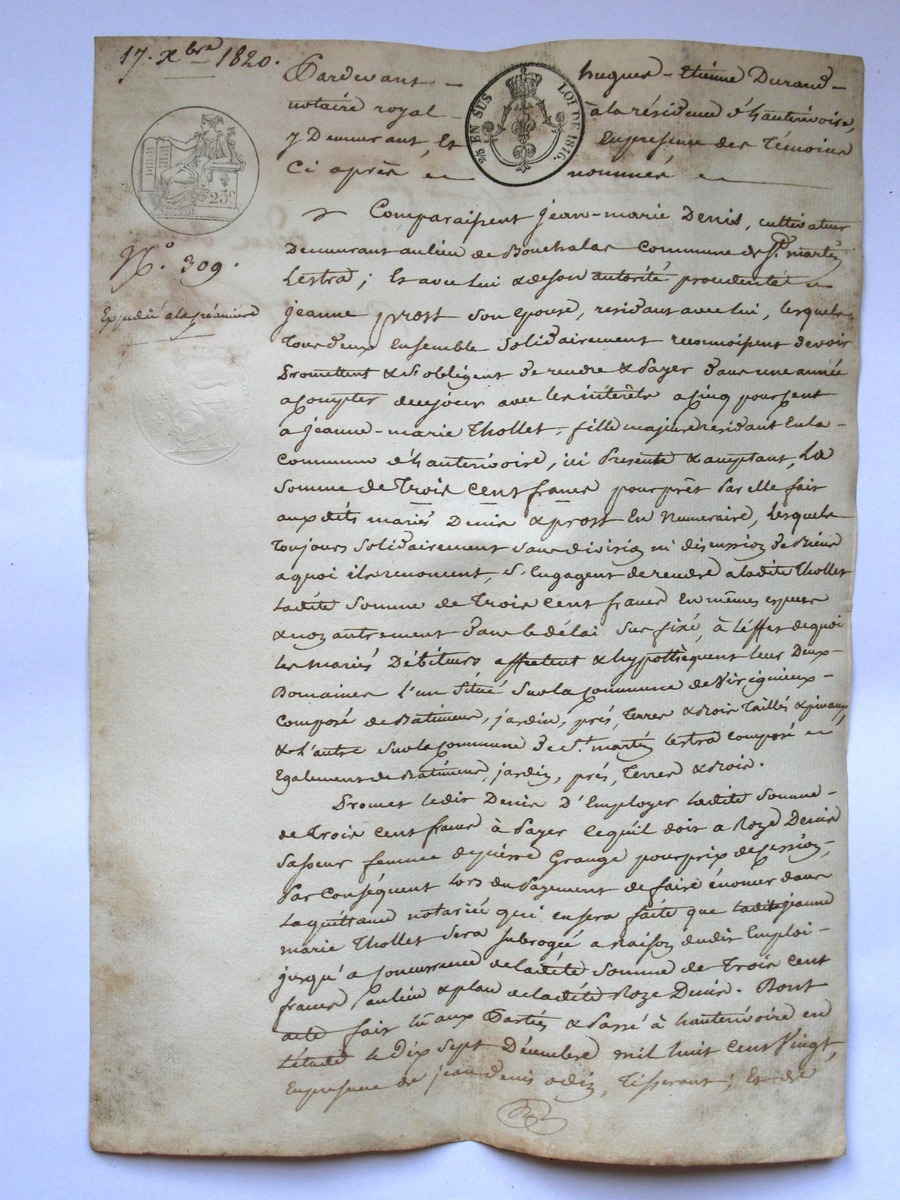 17. Xbre 1820.
Pardevant - hugues - Etienne Durand -
notaire royal - à la résidence d'hauterivoire,
y Demeurant, Et En présence des Témoins
Ci après nommés
EN SUS LOI DE 1816.
25c
N.o 309.
Expédié a la créancière
Comparaissent jean-marie Denis, cultivateur
Demeurant au lieu de Bouchalas commune de St. martin
Lestra; Et avec lui & de son autorité procédente
jeanne prost Son épouse, résidant avec lui, lesquels
Tous deux Ensemble Solidairement reconnoissent devoir
Promettent & s'obligent de rendre & Payer dans une année
a compter de ce jour avec les intérêts a Cinq pour Cent
a jeanne-marie Thollet, fille majeure résidant En la
commune d'hauterivoire, ici Présente & acceptant, La
Somme de Trois Cent francs pour prêt Par elle fait
aux dits mariés Denis & prost En Numéraire, Lesquels
Toujours Solidairement Sans division ni discussion de Biens
a quoi ils renoncent, S'Engagent de rendre a ladite Thollet
Ladite Somme de Trois Cent francs En mêmes espèces
& non autrement dans le délai Sus fixé, à l'éffet de quoi
les mariés Débiteurs affectent & hypothèquent leurs Deux
Domaines l'un Situé Sur la Commune de Virigneux
Composé de Bâtiments, jardin, prés, Terres & Bois Taillés & pinaux
& L'autre Sur la Commune de St. martin Lestra composé
Egalement de Bâtiments, jardin, prés, Terres & Bois.
Promet ledit Denis D'Employer Ladite Somme
de Trois Cent francs à Payer Ce qu'il doit a Roze Denis
Sa soeur femme de pierre Grange pour prix de Cession,
Par Conséquent Lors du Payement de faire énoncer dans
La quittance notariée qui en sera faite que ladite jeanne
marie Thollet Sera Subrogée a Raison dudit Emploi
jusqu'a Concurrence de ladite Somme de Trois Cent
francs au lieu & place de ladite Roze Denis. Dont
acte fait lû aux Parties & Passé à hauterivoire en
l'étude le Dix Sept Décembre mil huit Cent Vingt,
En présence de jean denis odin, Tisserant; Et de